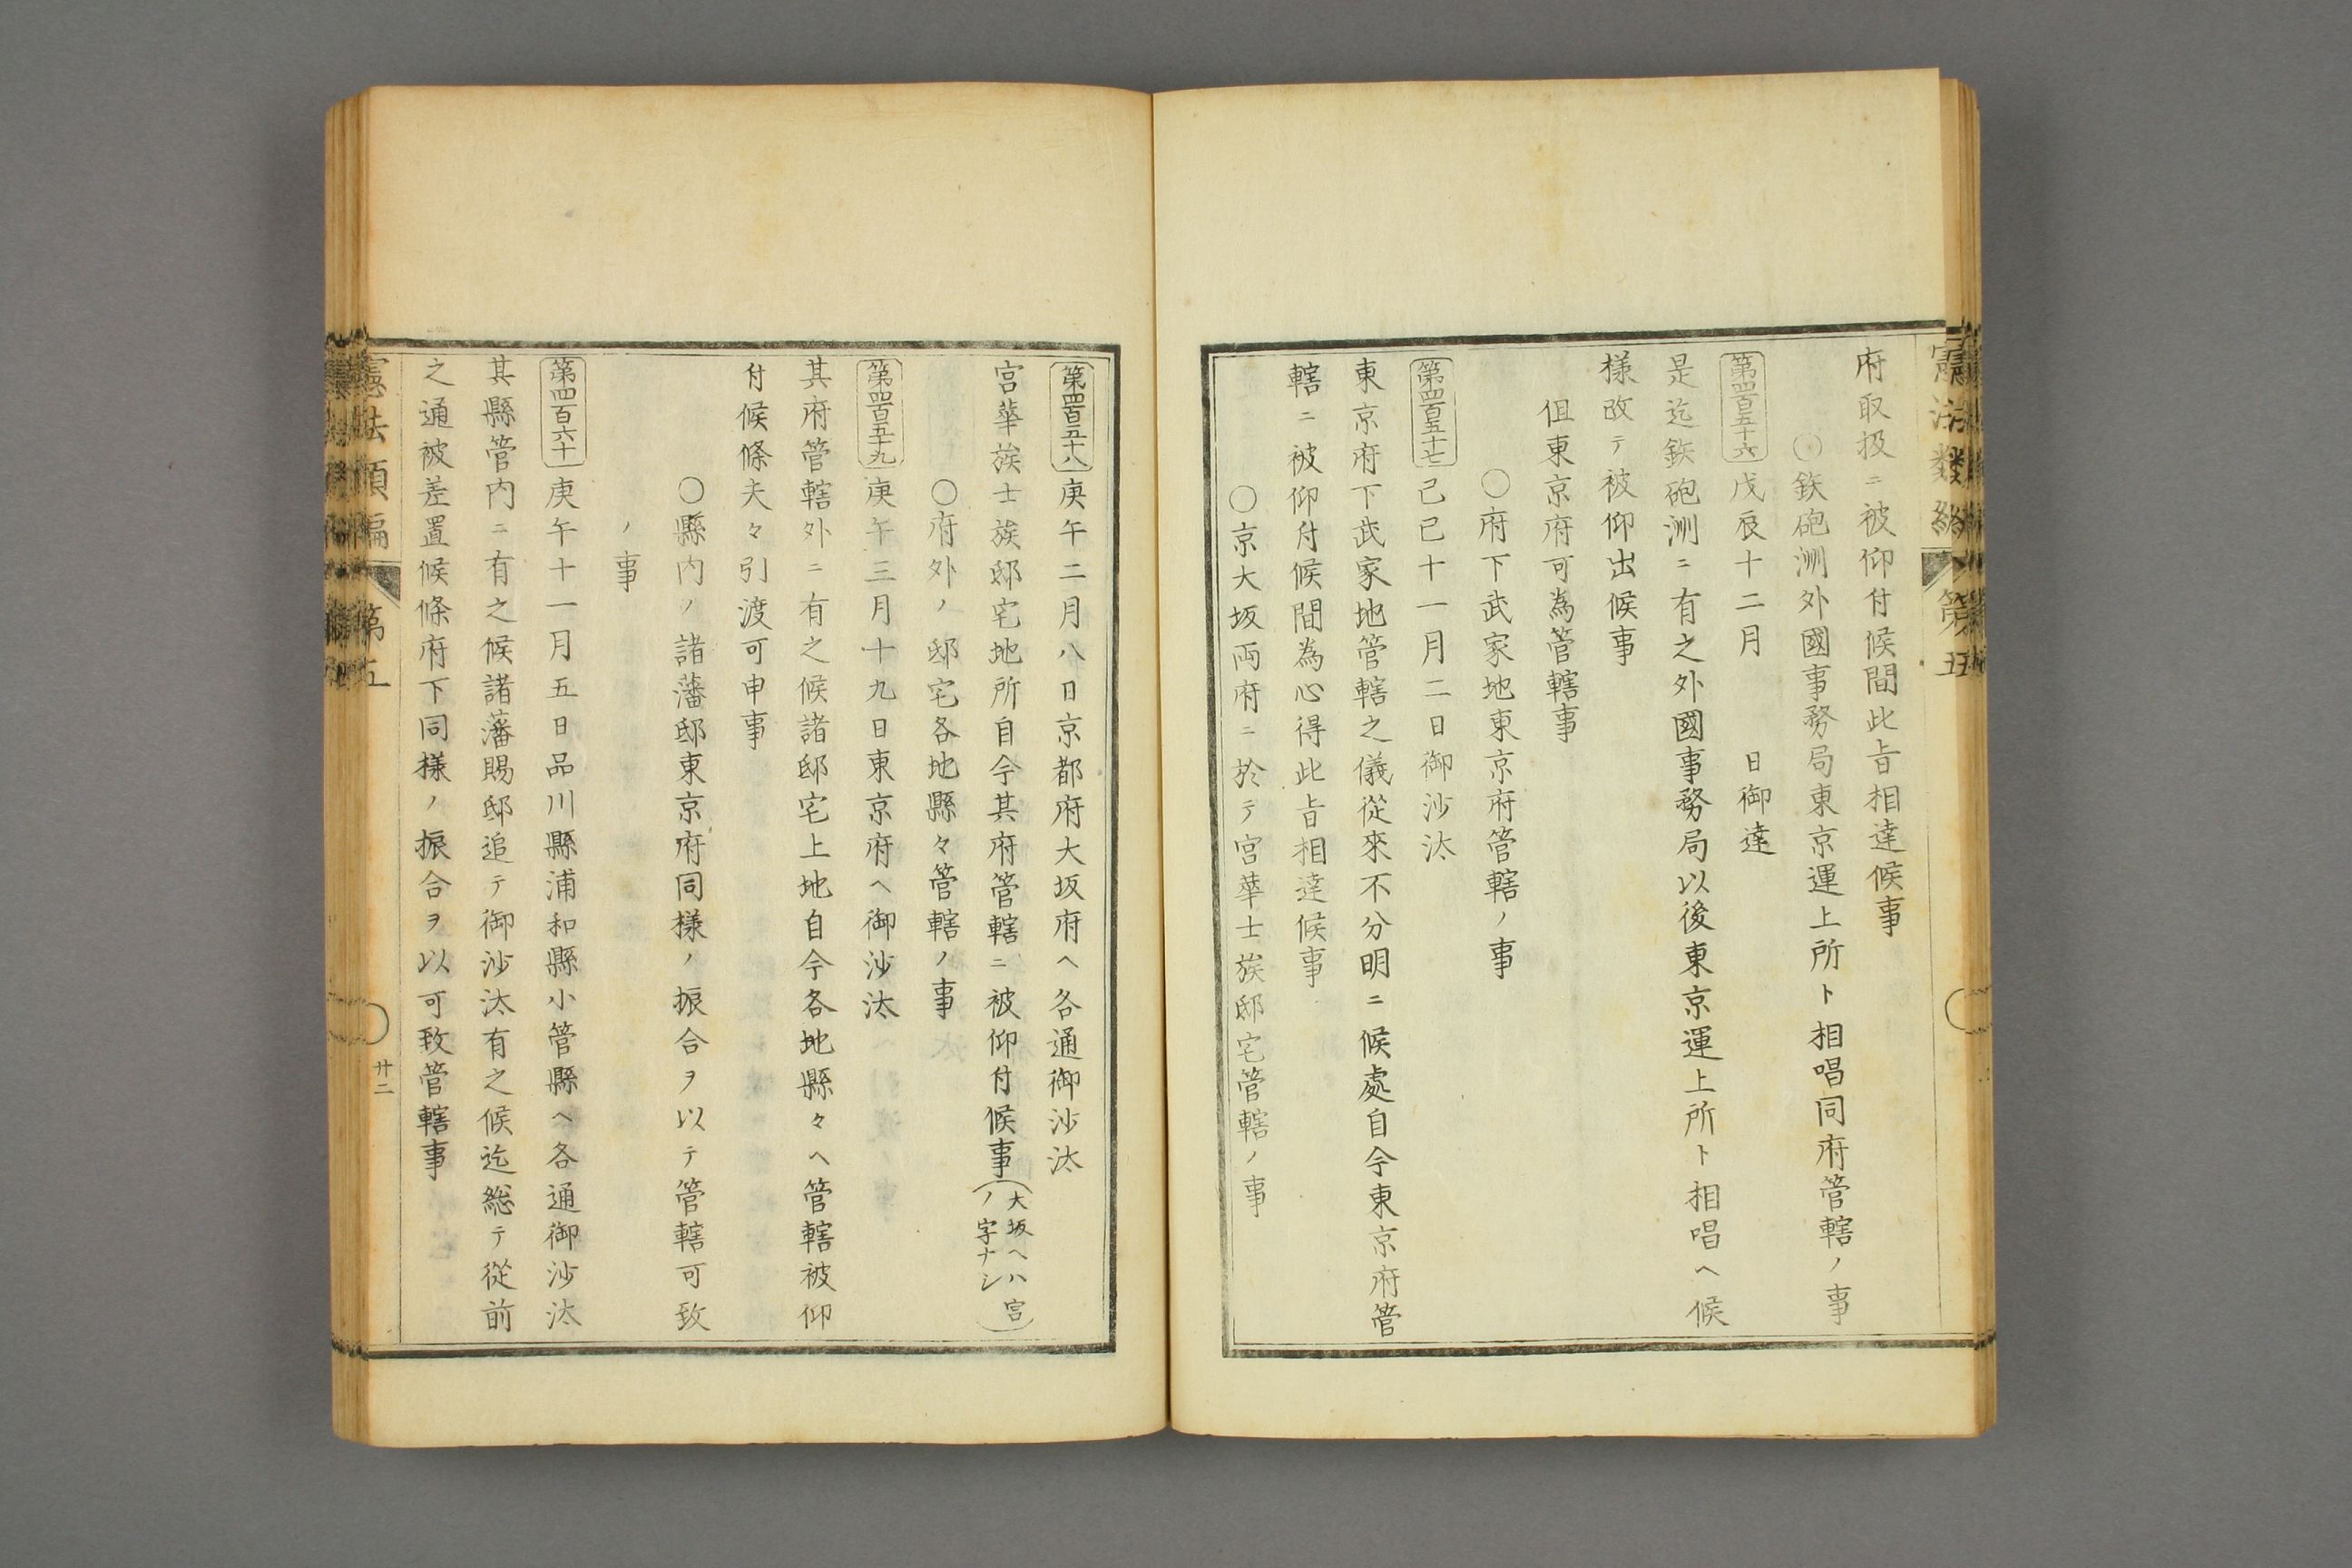 府取扱ニ被仰付候間此旨相達候事
○鉄砲洲外國事務局東京運上所ト相唱同府管轄ノ事
第四百五十六 戊辰十二月 日御達
是迄鉄砲洲ニ有之外國事務局以後東京運上所ト相唱ヘ候
様改テ被仰出候事
但東京府可為管轄事
○府下武家地東京府管轄ノ事
第四百五十七 己巳十一月二日御沙汰
東京府下武家地管轄之儀從來不分明ニ候處自今東京府管
轄ニ被仰付候間為心得此旨相達候事
○京大坂両府ニ於テ宮華士族邸宅管轄ノ事
第四百五十八 庚午二月八日京都府大坂府ヘ各通御沙汰
宮華族士族邸宅地所自今其府管轄ニ被仰付候事(大坂ヘハ宮
ノ字ナシ)
○府外ノ邸宅各地縣々管轄ノ事
第四百五十九 庚午三月十九日東京府ヘ御沙汰
其府管轄外ニ有之候諸邸宅上地自今各地縣々ヘ管轄被仰
付候條夫々引渡可申事
○縣内ノ諸藩邸東京府同樣ノ振合ヲ以テ管轄可致
ノ事
第四百六十 庚午十一月五日品川縣浦和縣小管縣ヘ各通御沙汰
其縣管内ニ有之候諸藩賜邸追テ御沙汰有之候迄総テ從前
之通被差置候條府下同様ノ振合ヲ以可致管轄事
憲法類編 第五
廿二